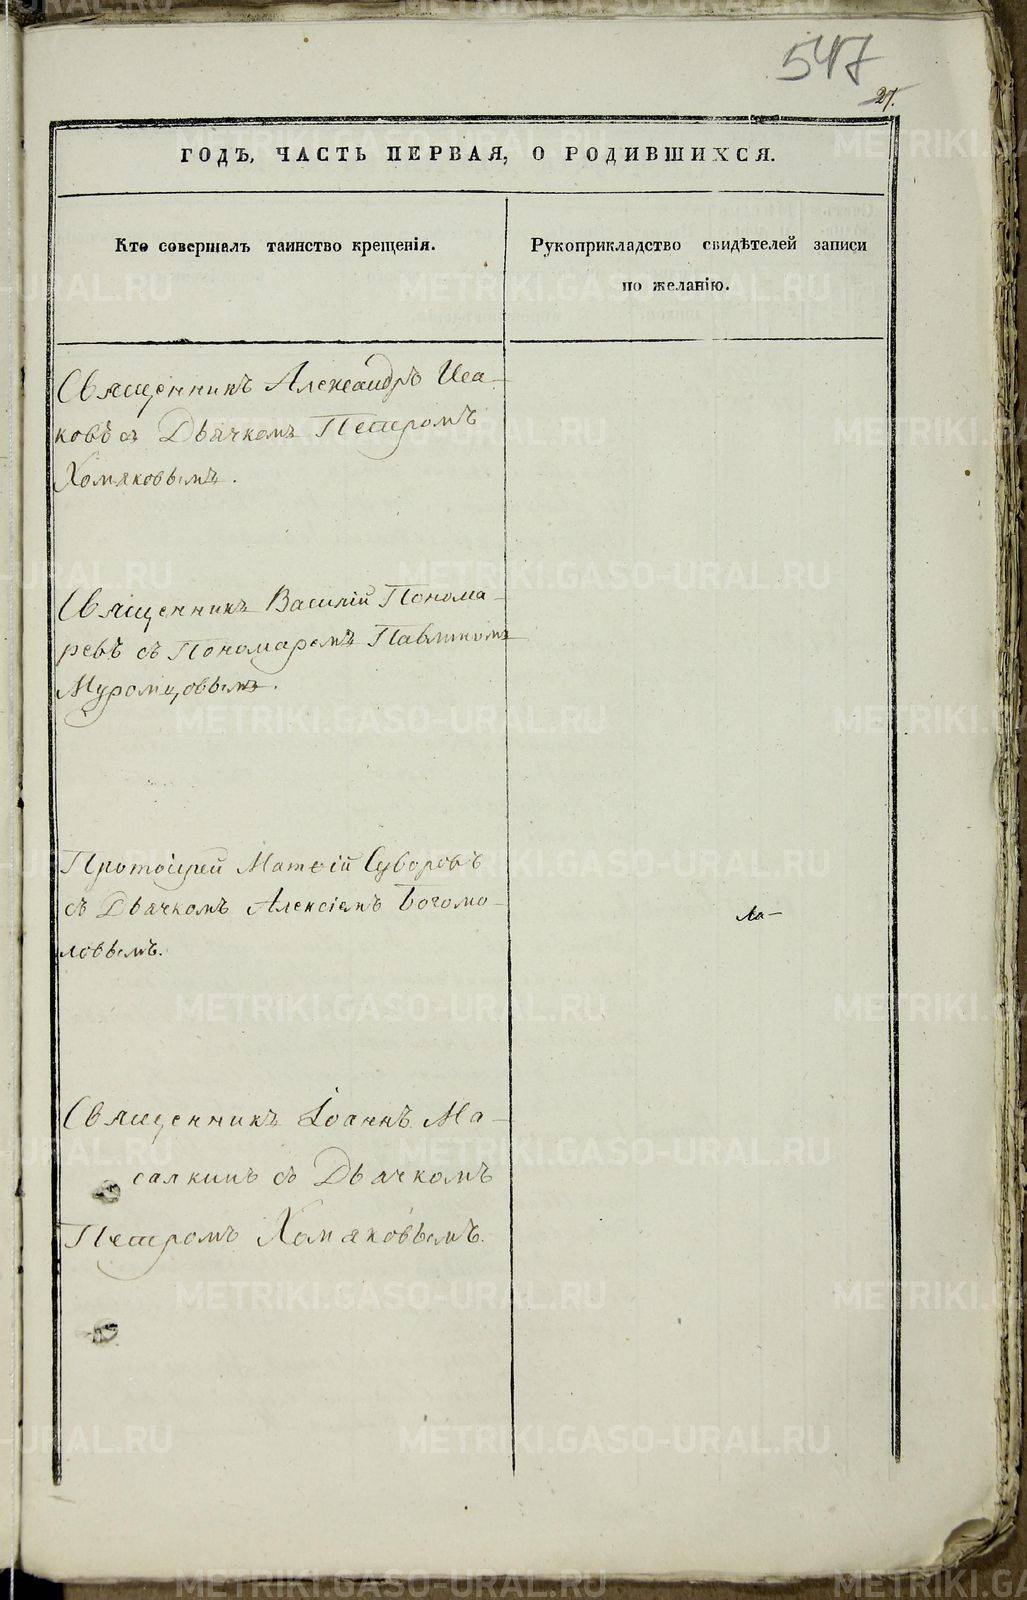 547
27.
ГОДЪ, ЧАСТЬ ПЕРВАЯ, О РОДИВШИХСЯ.
Кто совершалъ таинство крещенія.
Рукоприкладство свидѣтелей записи
по желанію.
Священникъ Александръ Иса-
ковъ съ Дьячкомъ Петромъ
Хомяковымъ.
Священникъ Василій Понома-
ревъ съ Пономаремъ Павлиномъ
Муромцовымъ.
Протоіерей Матѳій Суворовъ
съ Дьячкомъ Алексіемъ Богомо-
ловымъ.
Священникъ Іоаннъ Ма-
салкинъ съ Дьячкомъ
Петромъ Хомяковымъ.
ла-
METRIKI.GASO-URAL.RU